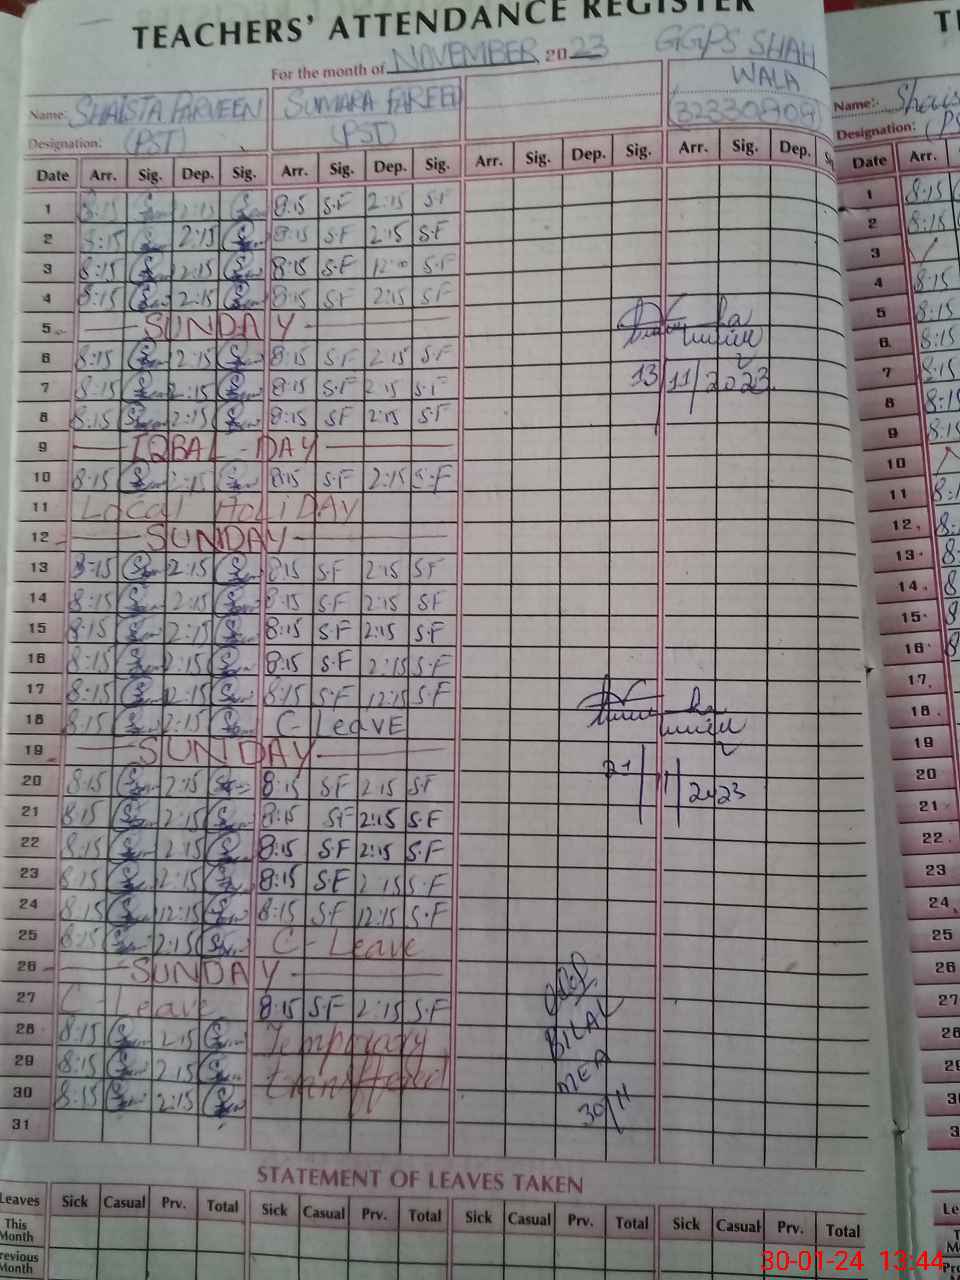 TEACHERS' ATTENDANCE REGISTER
For the month of NOVEMBER 2023 GGPS SHAH WALA
Name: SHAISTA PARVEEN SUMARA FAREED
Designation: (PST) (PST)
Date Arr. Sig. Dep. Sig. Arr. Sig. Dep. Sig. Arr. Sig. Dep. Sig. Arr. Sig. Dep.
1 8:15 2:15 8:15 S.F 2:15 S.F
2 8:15 2:15 8:15 S.F 2:15 S.F
3 8:15 2:15 8:15 S.F S.F
4 8:15 2:15 8:15 SF 2:15 SF
5 SUNDAY
6 8:15 2:15 8:15 S.F 2:15 S.F
7 8:15 2:15 8:15 S.F 2:15 S.F
13/11/2023
8 8:15 2:15 8:15 SF 2:15 S.F
9 IQBAL DAY
10 8:15 2:15 8:15 S.F 2:15 S.F
11 Local HoliDAY
12 SUNDAY
13 8:15 2:15 8:15 S.F 2:15 S.F
14 8:15 2:15 8:15 S.F 2:15 SF
15 8:15 2:15 8:15 S.F 2:15 S.F
16 8:15 2:15 8:15 S.F 2:15 S.F
17 8:15 12:15 8:15 S.F 12:15 S.F
18 8:15 2:15 C-LeAVE
19 SUNDAY
20 8:15 2:15 8:15 SF 2:15 SF
21/11/2023
21 8:15 2:15 8:15 SF 2:15 S.F
22 8:15 2:15 8:15 SF 2:15 S.F
23 8:15 2:15 8:15 S.F 2:15 S.F
24 8:15 12:15 8:15 S.F 12:15 S.F
25 8:15 2:15 C-Leave
26 SUNDAY
27 C-Leave 8:15 S.F 2:15 S.F
28 8:15 2:15 Temporary
BILAL
29 8:15 2:15 transffered
MEA
30 8:15 2:15
30/11
31
STATEMENT OF LEAVES TAKEN
Leaves Sick Casual Prv. Total Sick Casual Prv. Total Sick Casual Prv. Total Sick Casual Prv. Total
This Month
Previous Month
Name:
Designation:
Date Arr.
1 8:15
2 8:15
3
4 8:15
5 8:15
6 8:15
7 8:15
8 8:15
9 8:15
10
11
12
13
14
15
16
17
18
19
20
21
22
23
24
25
26
27
28
30-01-24 13:44